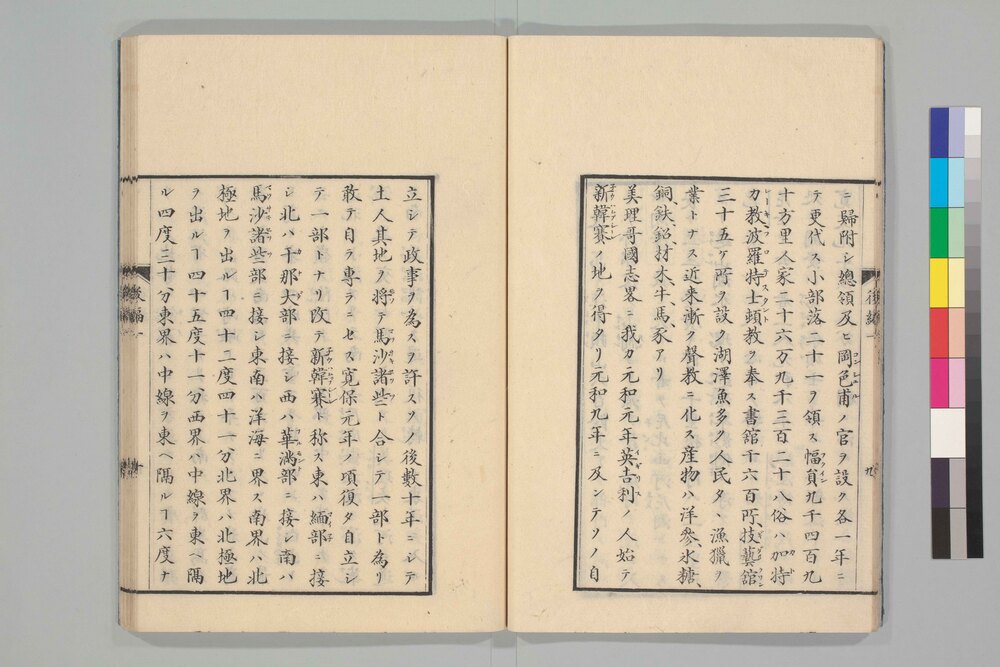 歸附シ總領及ヒ岡色甫ノ官ヲ設ク各一年ニ
テ更代ス小部落二十一ヲ領ス幅員九千四百九
十方里人家二十六万九千三百二十八俗ハ加特
力教波羅特士頓教ヲ奉ス書館千六百所、技藝館
三十五ケ所ヲ設ク湖澤魚多ク人民タヽ漁獵ヲ
業トナス近来漸ク聲教ニ化ス産物ハ洋參氷糖、
銅鉄、鉛、材木、牛馬、豕アリ
美理哥國志畧ニ我カ元和元年英吉利ノ人始テ
新韓賽ノ地ヲ得タリ元和九年ニ及ンテソノ自
後編
九
立シテ政事ヲ為スヲ許スソノ後數十年ニシテ
土人其地ヲ将テ馬沙諸些ト合シテ一部ト為リ
敢テ自ラ專ラニセス寛保元年ノ項復タ自立シ
テ一部トナリ改テ新韓賽ト称ス東ハ緬部ニ接
シ北ハ干那大部ニ接シ西ハ華満部ニ接シ南ハ
馬沙諸些部ニ接シ東南ハ洋海ニ界ス南界ハ北
極地ヲ出ルヿ四十二度四十一分北界ハ北極地
ヲ出ルヿ四十五度十一分西界ハ中線ヲ東ヘ隔
ル四度三十分東界ハ中線ヲ東ヘ隔ルヿ六度ナ
後編